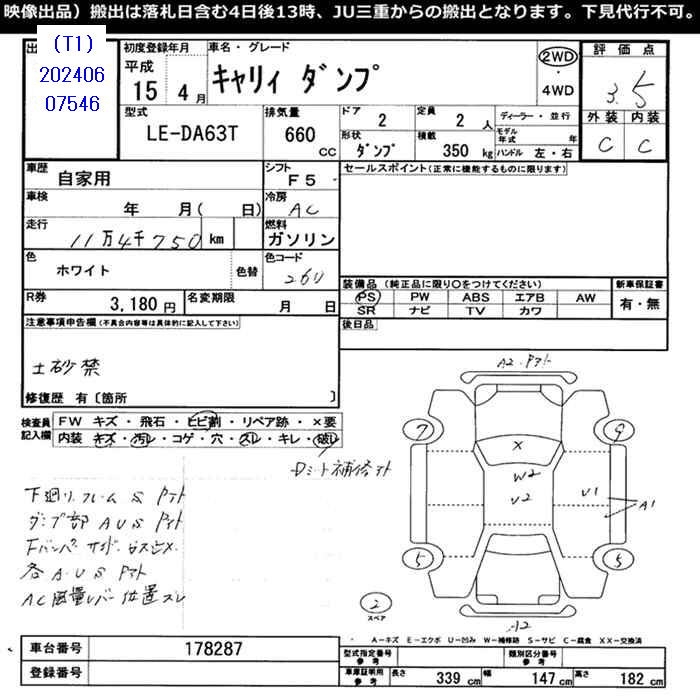 映像出品）搬出は落札日含む4日後13時、JU三重からの搬出となります。下見代行不可。
(T1)
202406
07546
初度登録年月
平成
15 4月
車名・グレード
キャリィ ダンプ
2WD
・
4WD
評価点
3.5
外装 内装
C C
型式
LE-DA63T
排気量
660 cc
ドア
2
定員
2人
形状
ダンプ
積載
350 kg
ディーラー・並行
モデル年式 年
ハンドル 左・右
車歴
自家用
シフト
F5
車検
年 月( 日)
冷房
AC
走行
11万4千750 km
燃料
ガソリン
色
ホワイト
色替
色コード
26U
R券
3,180円
名変期限
月 日
セールスポイント(正常に機能するものに限ります)
装備品（純正品に限り○をつけてください）
PS PW ABS エアB AW
SR ナビ TV カワ
新車保証書
有・無
後日品
注意事項申告欄(不具合内容等は具体的に記入して下さい)
土砂禁
修復歴 有〔箇所 〕
検査員記入欄
FW キズ・飛石・ヒビ割・リペア跡・×要
内装 キズ・汚レ・コゲ・穴・スレ・キレ・破レ
下廻リフレーム S
ダンプ部 A U S
各 A U S
AC風量レバー位置ズレ
A2
7 9
X
W2
U2
U1
A1
5 5
2
スペア
A2
A－キズ E－エクボ U－凹み W－補修跡 S－サビ C－腐食 XX－交換済
車台番号
178287
登録番号
型式指定番号
参考
類別区分番号
参考
車庫証明用
参考
長さ 339 cm 幅 147 cm 高さ 182 cm